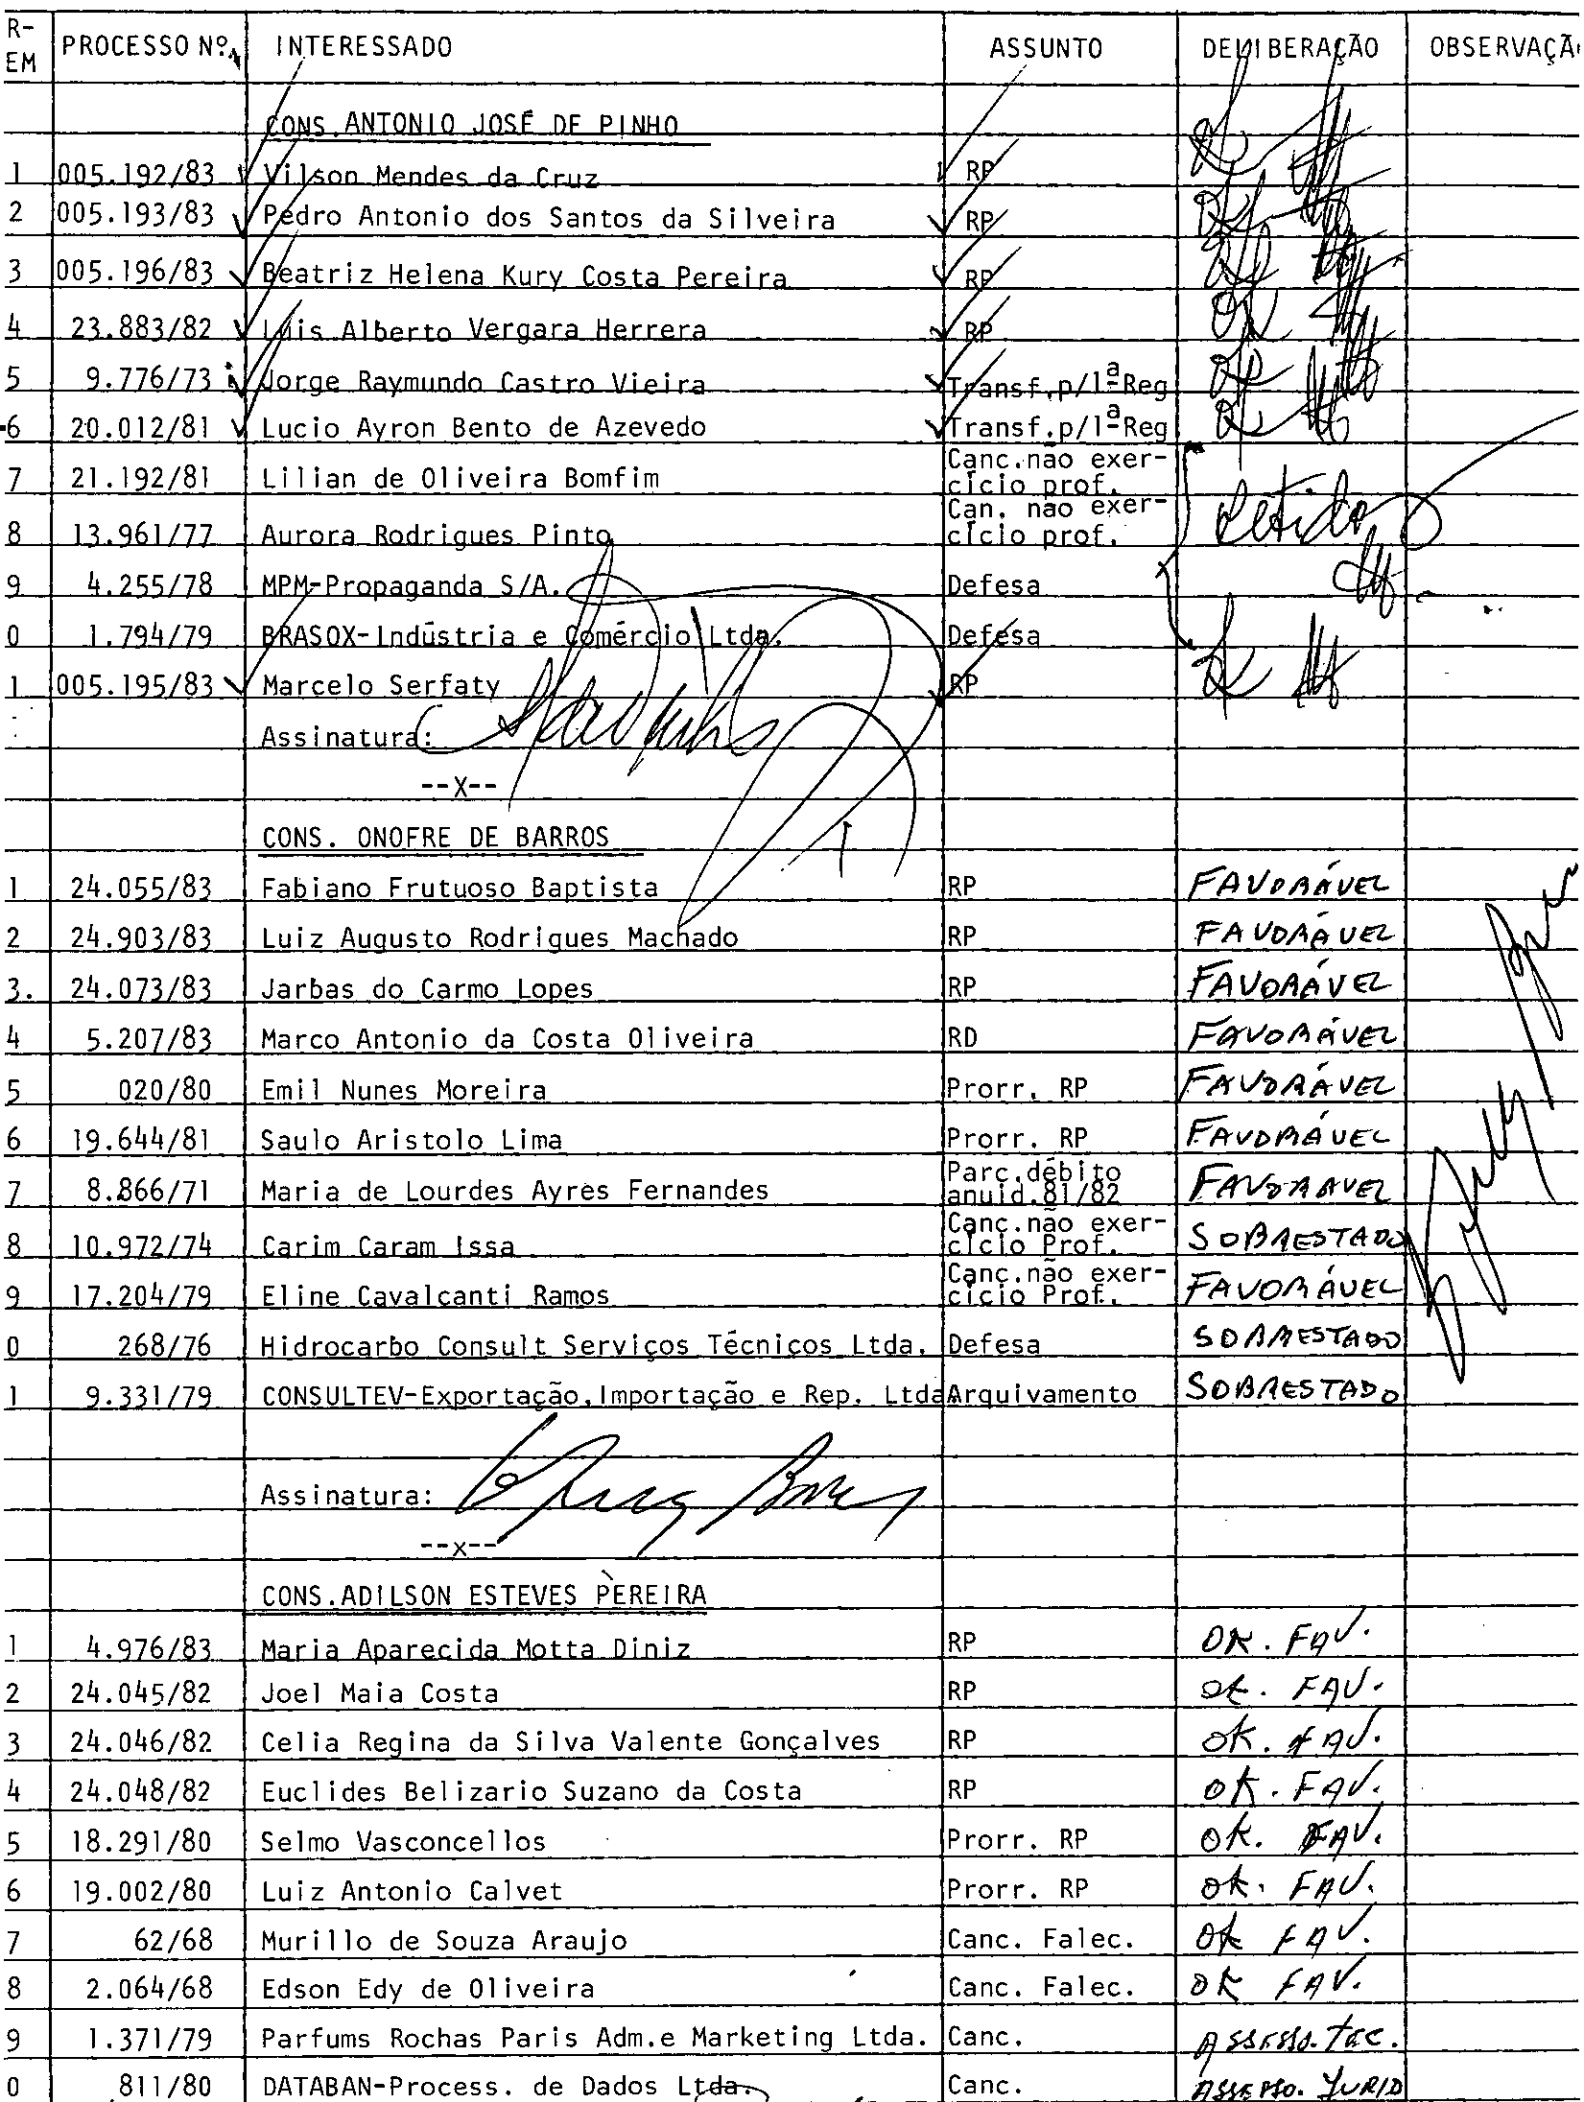 R-
EM PROCESSO Nº INTERESSADO ASSUNTO DELIBERAÇÃO OBSERVAÇÃ
CONS. ANTONIO JOSÉ DE PINHO
1 005.192/83 Vilson Mendes da Cruz RP OK
2 005.193/83 Pedro Antonio dos Santos da Silveira RP OK
3 005.196/83 Beatriz Helena Kury Costa Pereira RP OK
4 23.883/82 Luis Alberto Vergara Herrera RP OK
5 9.776/73 Jorge Raymundo Castro Vieira Transf.p/1ª Reg OK
6 20.012/81 Lucio Ayron Bento de Azevedo Transf.p/1ª Reg OK
7 21.192/81 Lilian de Oliveira Bomfim Canc.não exer-
cício prof.
8 13.961/77 Aurora Rodrigues Pinto Can. não exer-
cício prof. Retido
9 4.255/78 MPM-Propaganda S/A. Defesa
0 1.794/79 BRASOX-Indústria e Comércio Ltda. Defesa
1 005.195/83 Marcelo Serfaty RP OK
Assinatura:
--X--
CONS. ONOFRE DE BARROS
1 24.055/83 Fabiano Frutuoso Baptista RP FAVORÁVEL
2 24.903/83 Luiz Augusto Rodrigues Machado RP FAVORÁVEL
3. 24.073/83 Jarbas do Carmo Lopes RP FAVORÁVEL
4 5.207/83 Marco Antonio da Costa Oliveira RD FAVORÁVEL
5 020/80 Emil Nunes Moreira Prorr. RP FAVORÁVEL
6 19.644/81 Saulo Aristolo Lima Prorr. RP FAVORÁVEL
7 8.866/71 Maria de Lourdes Ayres Fernandes Parc.débito
anuid.81/82 FAVORAVEL
8 10.972/74 Carim Caram Issa Canc.não exer-
cício Prof. SOBRESTADO
9 17.204/79 Eline Cavalcanti Ramos Canc.não exer-
cício Prof. FAVORÁVEL
0 268/76 Hidrocarbo Consult Serviços Técnicos Ltda. Defesa SOBRESTADO
1 9.331/79 CONSULTEV-Exportação,Importação e Rep. Ltda Arquivamento SOBRESTADO
Assinatura:
--x--
CONS.ADILSON ESTEVES PEREIRA
1 4.976/83 Maria Aparecida Motta Diniz RP OK. FAV.
2 24.045/82 Joel Maia Costa RP OK. FAV.
3 24.046/82 Celia Regina da Silva Valente Gonçalves RP OK. FAV.
4 24.048/82 Euclides Belizario Suzano da Costa RP OK. FAV.
5 18.291/80 Selmo Vasconcellos Prorr. RP OK. FAV.
6 19.002/80 Luiz Antonio Calvet Prorr. RP OK. FAV.
7 62/68 Murillo de Souza Araujo Canc. Falec. OK FAV.
8 2.064/68 Edson Edy de Oliveira Canc. Falec. OK FAV.
9 1.371/79 Parfums Rochas Paris Adm.e Marketing Ltda. Canc. ASSESSO. TEC.
0 811/80 DATABAN-Process. de Dados Ltda. Canc. ASSESSO. JURID